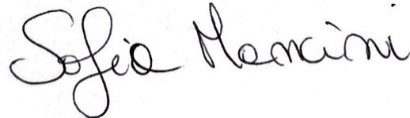 Sofia Mancini